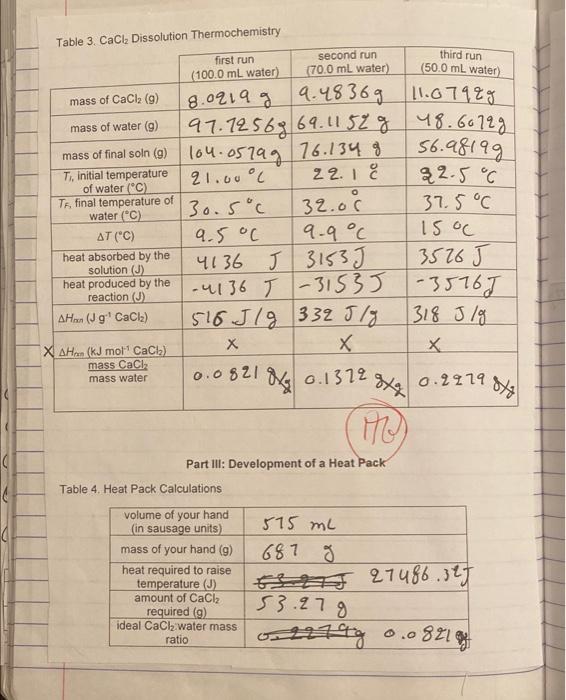 Table 3. CaCl₂ Dissolution Thermochemistry
first run (100.0 mL water) second run (70.0 mL water) third run (50.0 mL water)
mass of CaCl₂ (g) 8.0219 g 9.4836g 11.0792g
mass of water (g) 97.7256g 69.1152 g 48.6072g
mass of final soln (g) 104.0579g 76.134 g 56.9819g
Tᵢ, initial temperature of water (°C) 21.00°C 22.1 °C 22.5 °C
T_F, final temperature of water (°C) 30.5°C 32.0°C 37.5 °C
ΔT (°C) 9.5 °C 9.9 °C 15 °C
heat absorbed by the solution (J) 4136 J 3153J 3576 J
heat produced by the reaction (J) -4136 J -3153J -3576J
ΔHrxn (J g⁻¹ CaCl₂) 516 J/g 332 J/g 318 J/g
X ΔHrxn (kJ mol⁻¹ CaCl₂) X X X
mass CaCl₂
mass water 0.0821 g/g 0.1372 g/g 0.2279 g/g
Part III: Development of a Heat Pack
Table 4. Heat Pack Calculations
volume of your hand (in sausage units) 575 mL
mass of your hand (g) 687 g
heat required to raise temperature (J) 53.27J 27486.32J
amount of CaCl₂ required (g) 53.27g
ideal CaCl₂:water mass ratio 0.2279g 0.0821 g